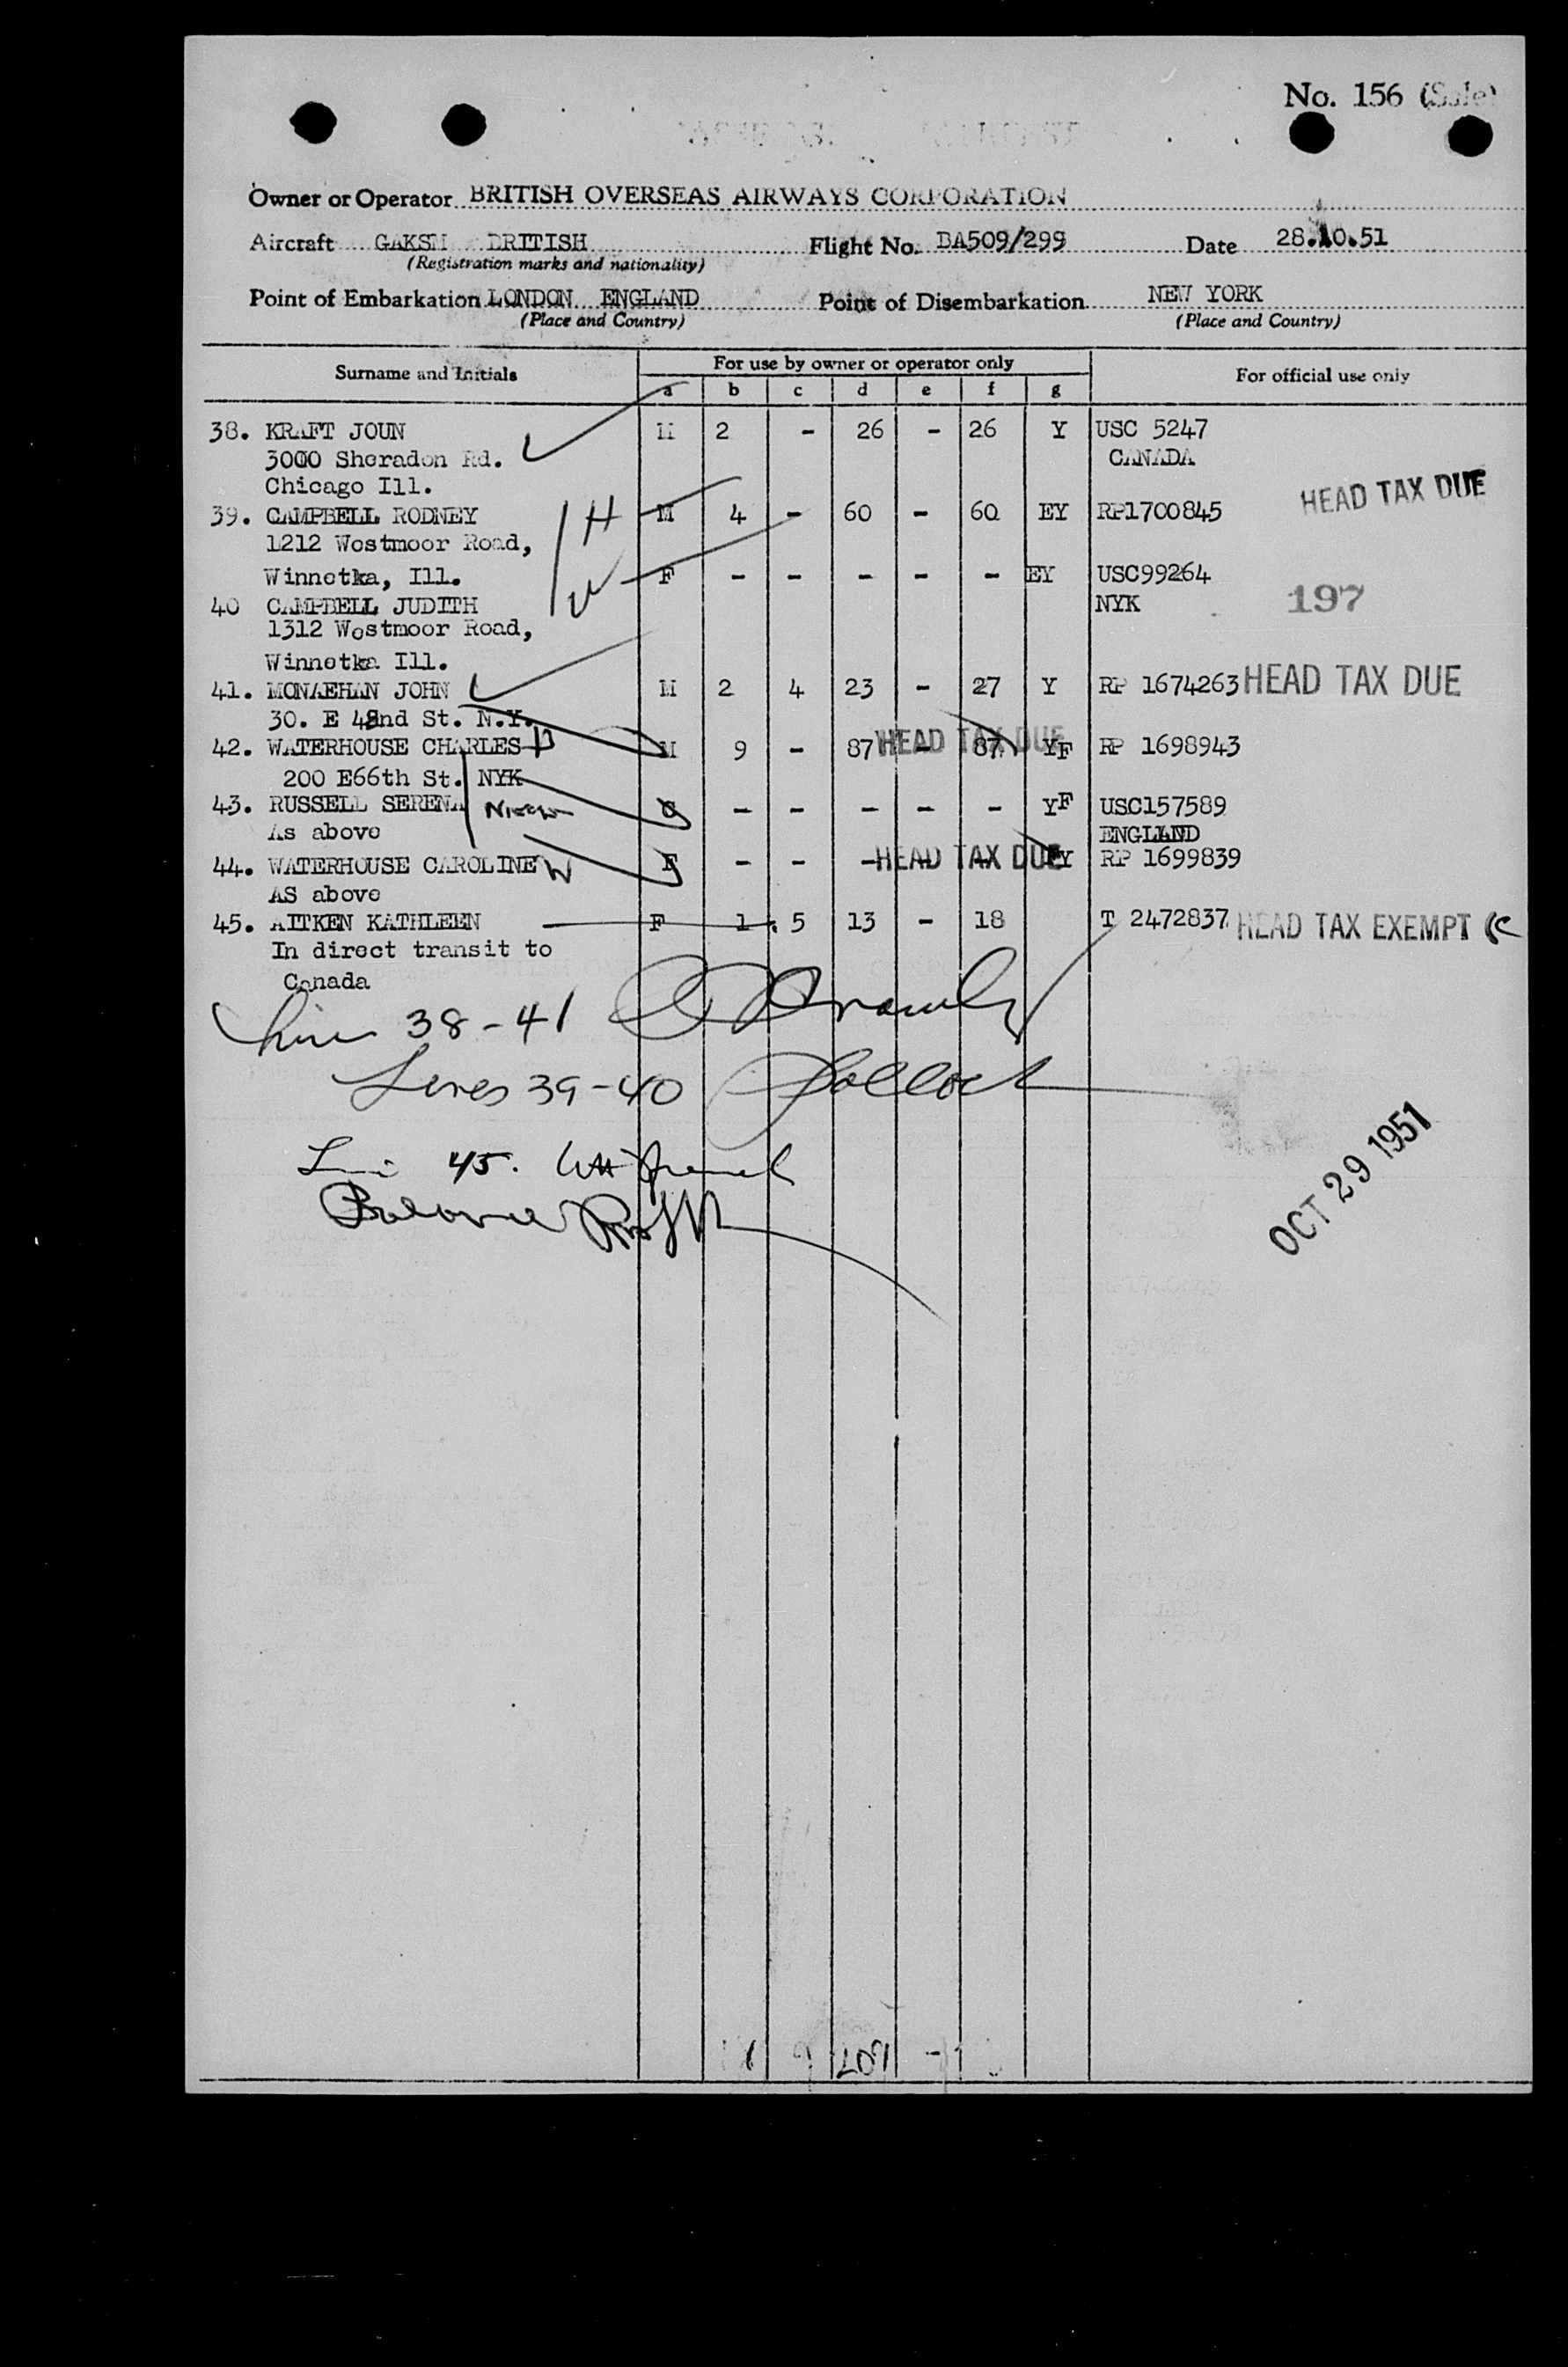 No. 156 (Sale)
Owner or Operator BRITISH OVERSEAS AIRWAYS CORPORATION
Aircraft GAKSM BRITISH Flight No. BA509/299 Date 28.10.51
(Registration marks and nationality)
Point of Embarkation LONDON ENGLAND Point of Disembarkation NEW YORK
(Place and Country) (Place and Country)
Surname and Initials For use by owner or operator only For official use only
a b c d e f g
38. KRAFT JOUN M 2 - 26 - 26 Y USC 5247
3000 Sheradon Rd. CANADA
Chicago Ill. HEAD TAX DUE
39. CAMPBELL RODNEY H M 4 - 60 - 60 EY RP1700845
1212 Westmoor Road,
Winnetka, Ill. W F - - - - - EY USC99264
40 CAMPBELL JUDITH NYK 197
1312 Westmoor Road,
Winnetka Ill.
41. MONAEHAN JOHN M 2 4 23 - 27 Y RP 1674263 HEAD TAX DUE
30. E 42nd St. N.Y.
42. WATERHOUSE CHARLES H M 9 - 87 - 87 YF RP 1698943 HEAD TAX DUE
200 E66th St. NYK
43. RUSSELL SERENA Niece C - - - - - YF USC157589
As above ENGLAND
44. WATERHOUSE CAROLINE W F - - - - - FY RP 1699839 HEAD TAX DUE
AS above
45. AITKEN KATHLEEN F 1 5 13 - 18 T 2472837 HEAD TAX EXEMPT
In direct transit to
Canada
Line 38-41
Lines 39-40 Pollock
Line 45.
Balance
OCT 29 1951